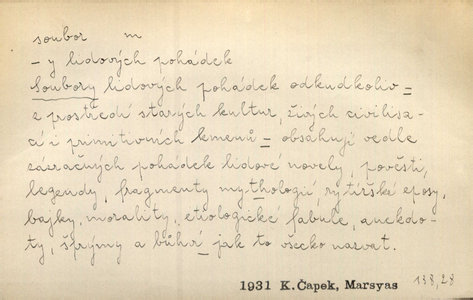 soubor m
– y lidových pohádek
Soubory lidových pohádek odkudkoliv =
z prostředí starých kultur, živých civilisa-
cí i primitivních kmenů = obsahují vedle
zázračných pohádek lidové novely, pověsti,
legendy, fragmenty mythologií, rytířské eposy,
bajky, morality, etiologické fabule, anekdo-
ty, šprýmy a bůhví jak to všecko nazvat.
1931 K.Čapek, Marsyas 138,28